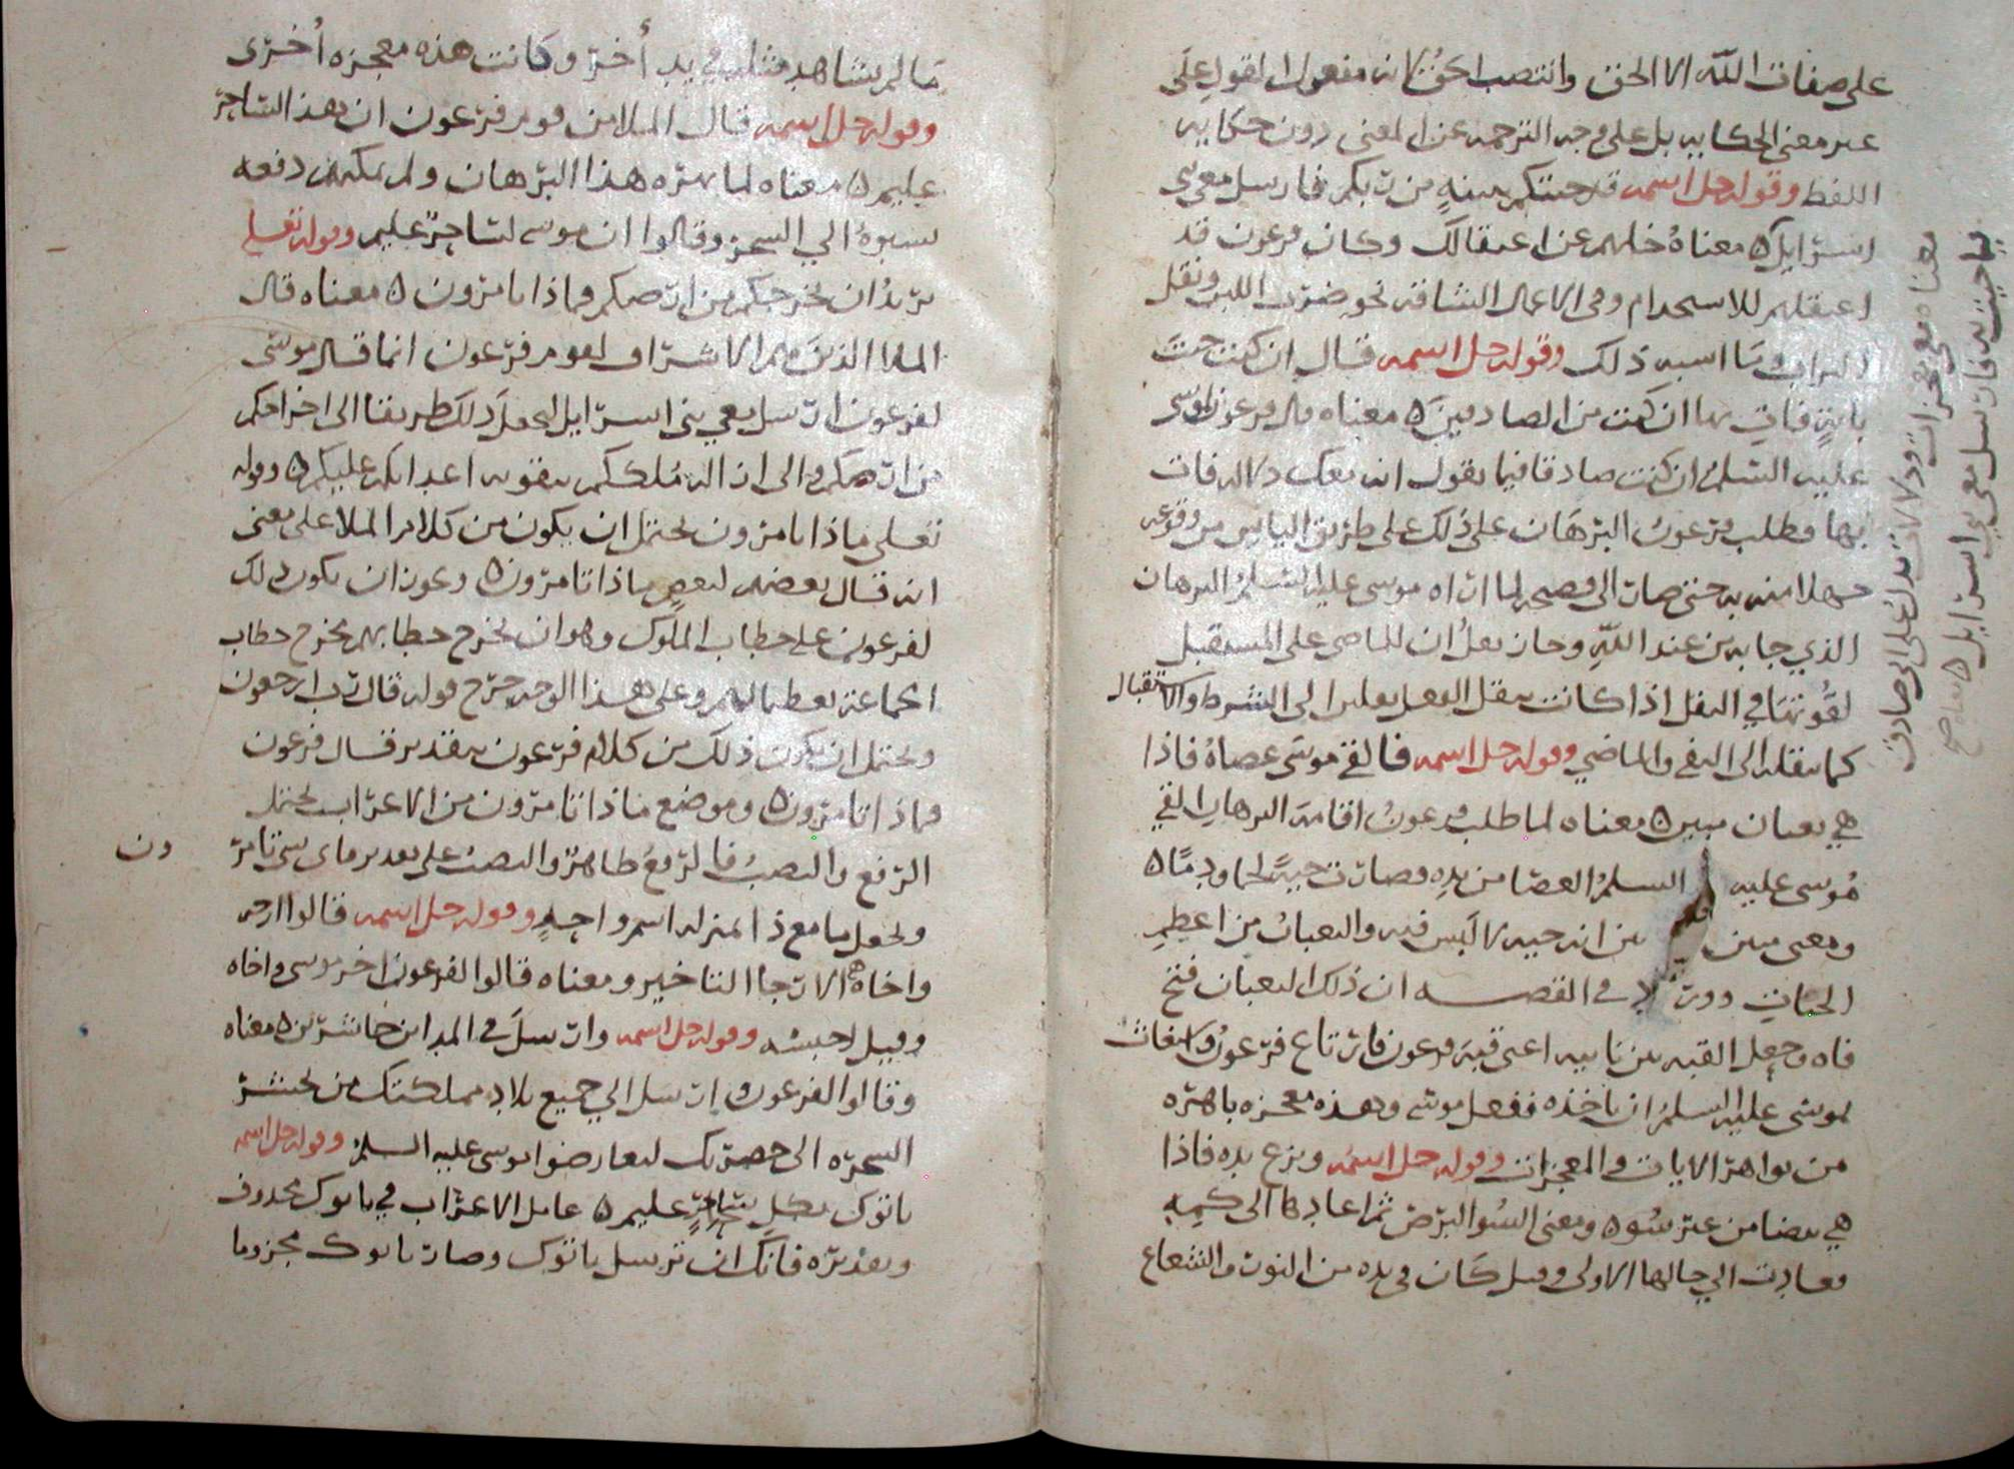 على صفات الله الا الحق وانتصب الحق لانه مفعول لاقول على
غير معنى الحكايه بل على وجه الترجمه عن المعنى دون حكايه
اللفظ وقوله جل اسمه قد جئتكم ببينةٍ من ربكم فارسل معي بني
اسرايل ه معناهُ خلهم من اعتقالك وكان فرعون قد
اعتقلهم للاستخدام وفي الاعمال الشاقه نحو ضرب اللبن ونقل
التراب وما اشبه ذلك وقوله جل اسمه قال ان كنت جئت
بايةٍ فاتِ بها ان كنت من الصادقينَ ه معناه قال فرعون لموسى
عليه السلمُ ان كنت صادقا فيما تقول انه معك دلاله فات
بها فطلب فرعونُ البرهَان على ذلك على طريق الياس من وقوعه
جهلا منه به حتى صار الى فصيحه لما اراه موسى عليه السلمُ البرهان
الذي جا به من عند اللهِ وجاز نقلُ ان للماضي على المستقبل
لقُوتها في النقل اذا كانت تنقل الفعل نقلين الى الشرط والاستقبال
كما تنقله الى النفي والماضي وقوله جل اسمه فالقى موسَى عصاهُ فاذا
هي ثعبان مبين ه معناه لما طلب فرعونُ اقامةَ البرهان القى
مُوسى عليه السلمُ العصَا من يدِه فصارت حيةً لحما ودمًا ه
ومعنى مبين بين انه حيه لا لَبس فيه والثعبانُ من اعظمِ
الحيّاتِ وورد في القصه ان ذلك الثعبان فتح
فاه وجعل القبه بين نابيه اعني قبةَ فرعون فارتاع فرعونُ واستغاث
بموسى عليه السلمُ ان ياخذه ففعل موسى وهذه معجزه باهره
من بواهر الايات والمعجزات وقوله جل اسمُه ونزع يده فاذا
هي بيضا من غير سُوه ومعنى السُوا البرَصُ ثم اعادها الى كمِه
فعادت الى حالها الاولى وقيل كَان في يده من النور والشعاع
معناه معي معجزات ودلالات تدل على اني صادق
فيما جيت به فارسل معي بني اسرايل ه صح
مَا لم يشاهد مثله في يدٍ أخرى وكانت هذه معجزه أُخرى
وقوله جل اسمه قال الملا من قوم فرعون ان هذا لساحر
عليم ه معناه لما بهره هذا البرهان ولم يمكنهم دفعه
نسبوهُ الى السحر وقالوا ان موسى لساحرٌ عليم وقوله تعلى
يريدُ ان يخرجكم من ارضكم فماذا تامرون ه معناه قال
الملا الذين هم الاشراف لقوم فرعون انما قال موسى
لفرعون ارسل معي بني اسرايل ليجعلَ ذلك طريقا الى اخراجكم
من ارضكم والى ازالة مُلككم بتقويه اعدايكم عليكم ه وقوله
تعلى ماذا تامرون يحتمل ان يكون من كلام الملا على معنى
انه قال بعضهم لبعضٍ ماذا تامرون ه ويجوز ان يكون ذلك
لفرعون على خطاب الملوك وهو ان يخرج خطابهم مخرج خطاب
الجماعه تعظيما لهم وعلى هذا الوجه خرج قوله قال رب ارجعون
ويحتمل ان يكون ذلك من كلام فرعون بتقدير قال فرعون
فماذا تامرون ه وموضع ماذا تامرون من الاعراب يحتمل
الرفع والنصبُ فالرفعُ ظاهرٌ والنصبُ على تقدير ماى شي تامر
ون
ويجعل ما مع ذا بمنزلة اسم واحدٍ وقوله جل اسمه قالوا ارجه
واخاه ه الارجا التاخير ومعناه قالوا لفرعون اخر موسى واخاه
وقيل احبسه وقوله جل اسمه وارسلَ في المداين حاشرين ه معناه
وقالوا لفرعون وارسَل الى جميع بلادِ مملكتك من يحشر
السحره الى حضرتك ليعارضوا موسى عليه السلمُ وقوله جل اسمه
ياتوك بكل ساحرٍ عليم ه عامل الاعراب في ياتوك محذوف
وتقديره فانك ان ترسل ياتوك وصار ياتوك مجزوما